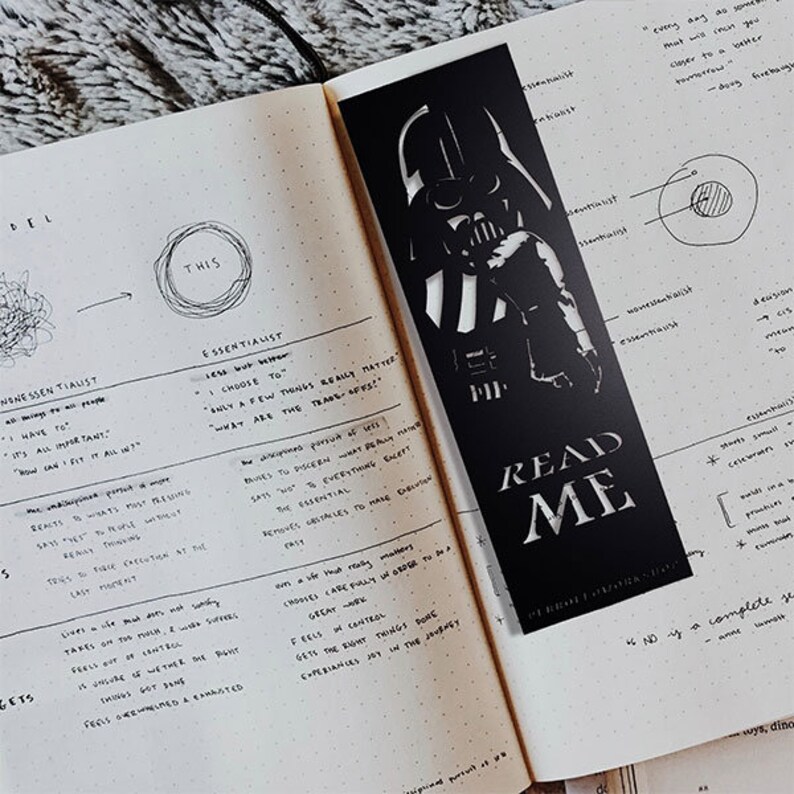 DEL
THIS
NONESSENTIALIST
ESSENTIALIST
all things to all people
"I HAVE TO"
"IT'S ALL IMPORTANT."
"HOW CAN I FIT IT ALL IN?"
less but better
"I CHOOSE TO"
"ONLY A FEW THINGS REALLY MATTER"
"WHAT ARE THE TRADE-OFFS?"
the undisciplined pursuit of more
REACTS TO WHAT'S MOST PRESSING
SAYS "YES" TO PEOPLE WITHOUT
REALLY THINKING
TRIES TO FORCE EXECUTION AT THE
LAST MOMENT
the disciplined pursuit of less
PAUSES TO DISCERN WHAT REALLY MATTERS
SAYS "NO" TO EVERYTHING EXCEPT
THE ESSENTIAL
REMOVES OBSTACLES TO MAKE EXECUTION
EASY
S
GETS
lives a life that does not satisfy
TAKES ON TOO MUCH, & WORK SUFFERS
FEELS OUT OF CONTROL
IS UNSURE OF WETHER THE RIGHT
THINGS GOT DONE
FEELS OVERWHELMED & EXHAUSTED
lives a life that really matters
CHOOSES CAREFULLY IN ORDER TO DO A
GREAT WORK
FEELS IN CONTROL
GETS THE RIGHT THINGS DONE
EXPERIANCES JOY IN THE JOURNEY
disciplined pursuit of
READ
ME
"every day do something
that will inch you
closer to a better
tomorrow."
- doug firebaugh
essentialist
essentialist
essentialist
nonessentialist
essentialist
decision
"to
essentialist
* starts small
celebrates
builds in a b
* 
"NO is a complete se
- anne lamott
toys, dino